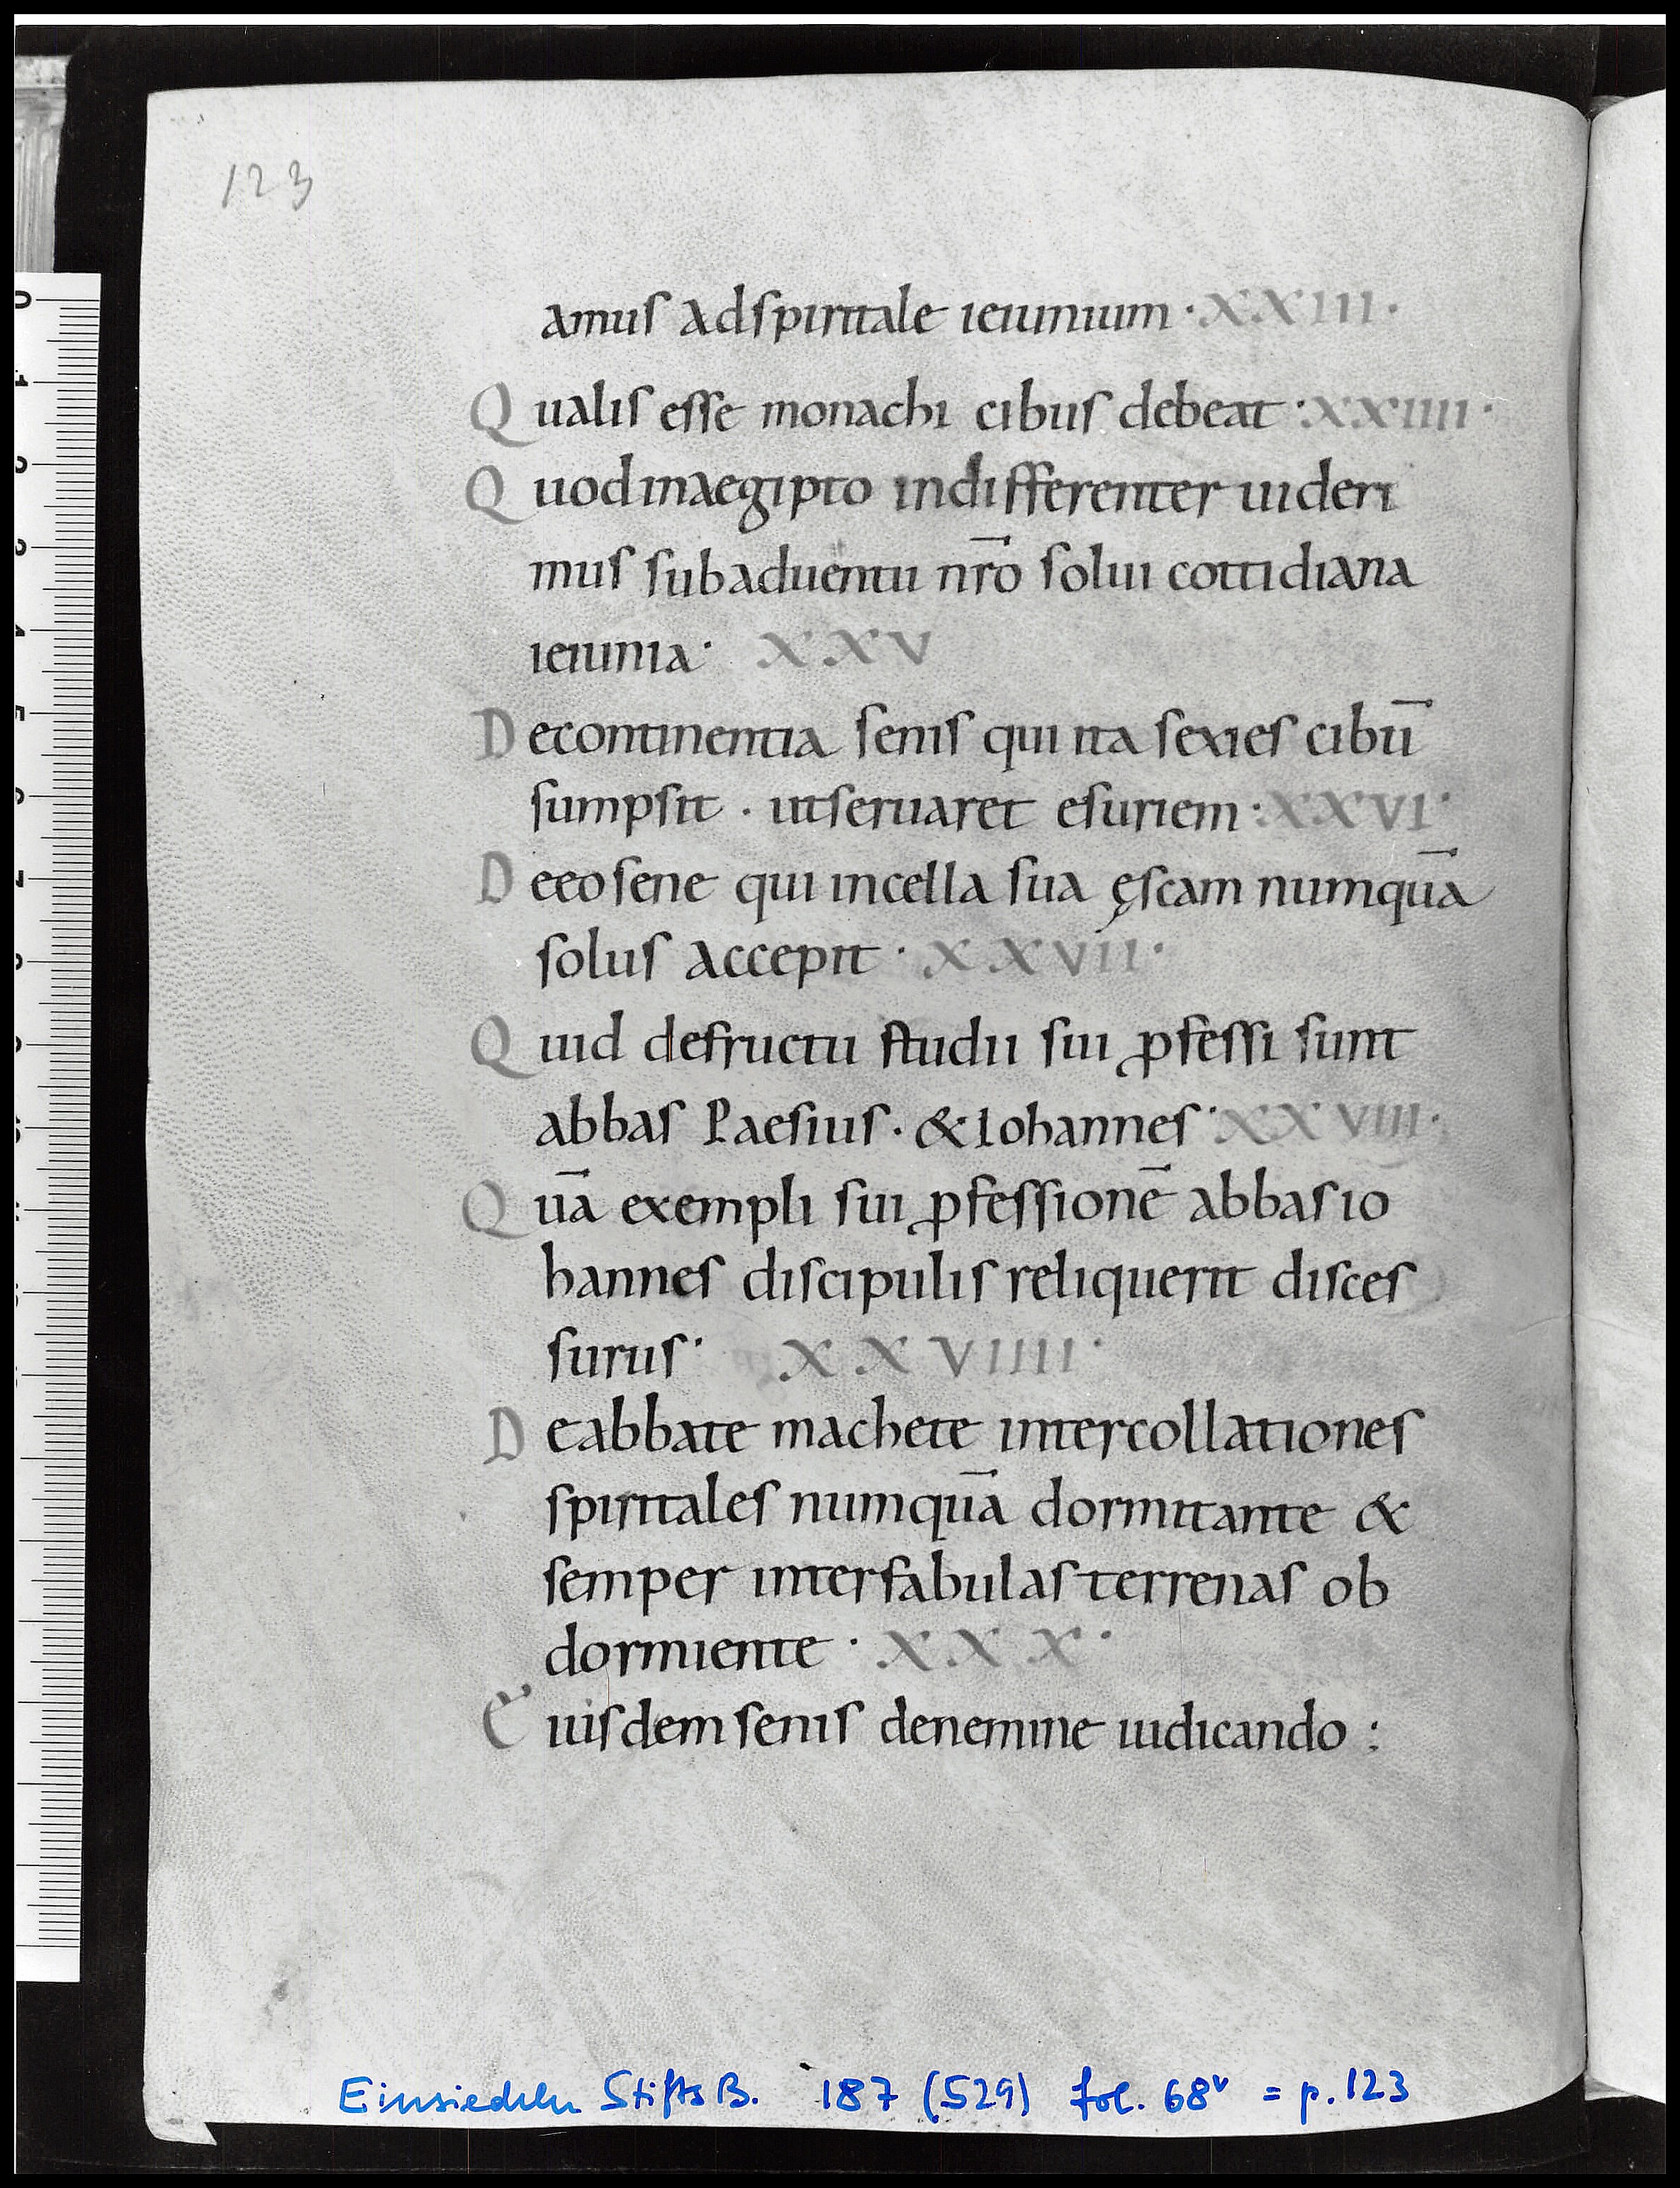 123
amus adspiritale ieiunium · XXIII ·
Qualis esse monachi cibus debeat · XXIIII ·
Quod inaegipto indifferenter uideri
mus subaduentu nr̄o solui cottidiana
ieiunia · XXV
Decontinentia senis qui ita sexies cibū
sumpsit . utseruaret esuriem : XXVI ·
Deeo sene qui incella sua ęscam numquā
solus accepit · XXVII ·
Quid defructu studii sui ꝓfessi sunt
abbas Paesius . & Iohannes · XXVIII ·
Quā exempli sui ꝓfessionē abbas io
hannes discipulis reliquerit disces
surus · XXVIIII ·
Deabbate machete intercollationes
spiritales numquā dormitante &
semper interfabulas terrenas ob
dormiente · XXX ·
Euisdem senis denemine iudicando :
Einsiedeln StiftsB. 187 (529) fol. 68v = p. 123